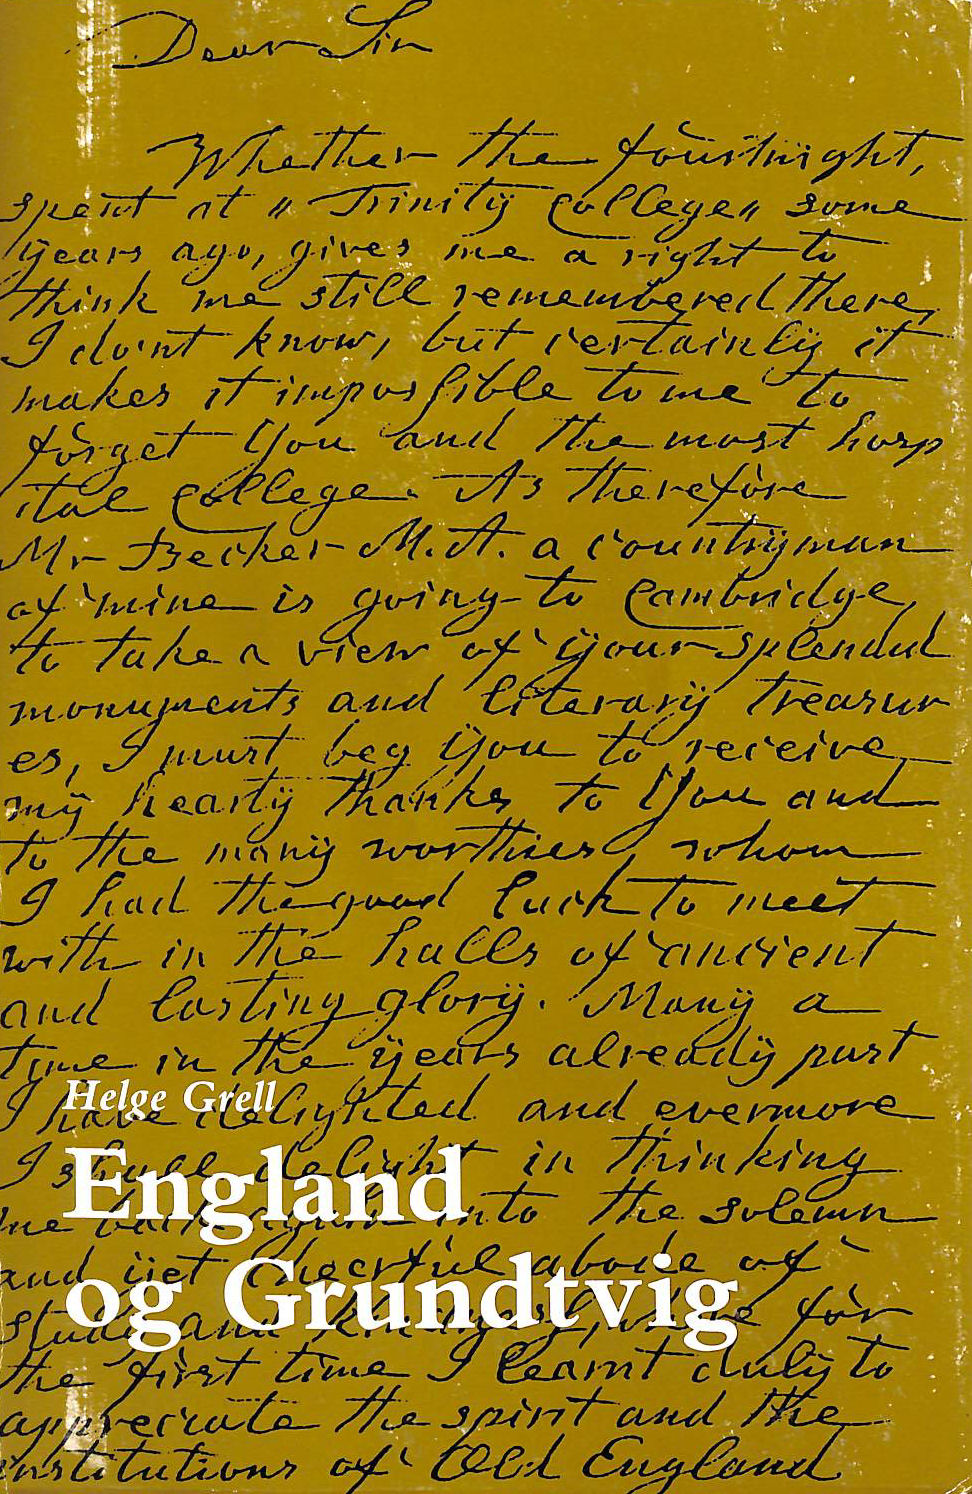 Dear Sir
Whether the fourtnight,
spent at „Trinity College„ some
years ago, gives me a right to
think me still remembered there,
I do'nt know, but certainly it
makes it impossible to me to
forget You and the most hosp
ital College. As therefore
Mr Becker M.A. a countryman
of mine is going to Cambridge,
to take a view of your splendid
monuments and literary treasur
es, I must beg You to receive
my hearty thanks to You and
to the many worthies whom
I had the good luck to meet
with in the halls of ancient
and lasting glory. Many a
time in the years already past
I have delighted and evermore
Helge Grell
I shall delight in thinking
England
me back again into the solemn
and yet cheerful abode of
og Grundtvig
study and where for
the first time I learnt duly to
appreciate the spirit and the
institutions of Old England